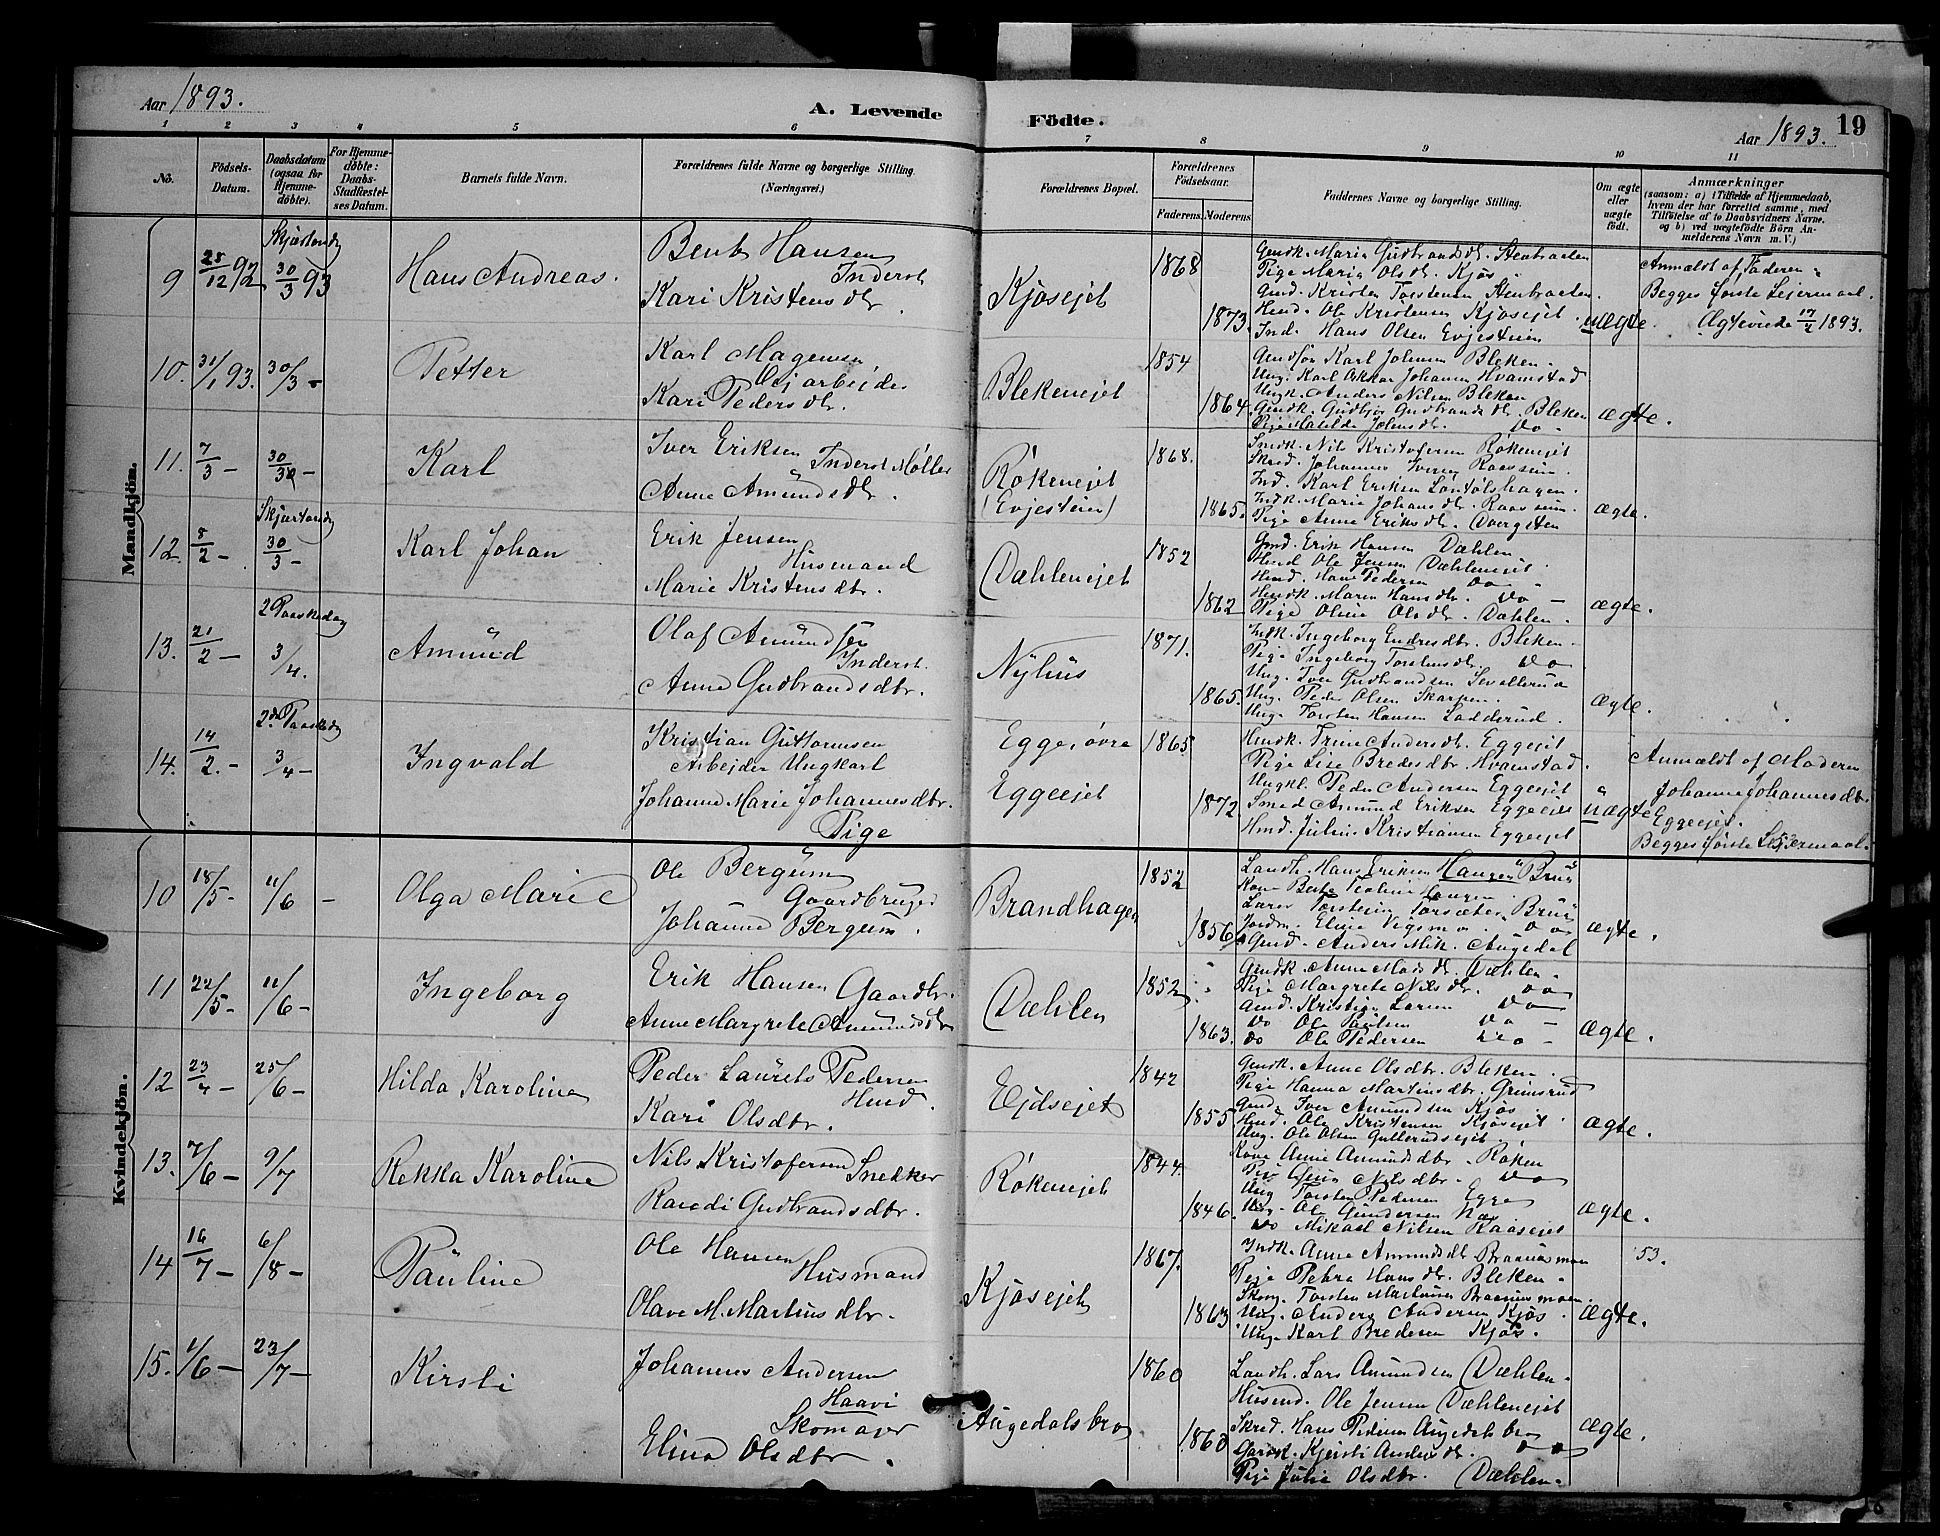 Aar 1893.
A. Levende Födte.
19
Aar 1893.
1 2 3 4 5 6 7 8 9 10 11
No.
Födsels-Datum.
Daabsdatum (ogsaa for Hjemmedöbte).
For Hjemmedöbte: Daabs-Stadfæstelses Datum.
Barnets fulde Navn.
Forældrenes fulde Navne og borgerlige Stilling. (Næringsvei.)
Forældrenes Bopæl.
Forældrenes Födselsaar.
Faderens. Moderens.
Faddernes Navne og borgerlige Stilling.
Om ægte eller uægte födt.
Anmærkninger
(saasom: a) i Tilfælde af Hjemmedaab, hvem der har forrettet samme, med Tilföielse af to Daabsvidners Navne, og b) ved uægtefödte Börn Anmelderens Navn m. V.)
Mandkjön.
9 25/12 92 Skjærtorsdg 30/3 93
Hans Andreas.
Bent Hansen
Inderst
Kari Kristensdtr.
Kjosejet
1868
1873.
Gmdk. Maria Gudbrandsdtr. Stenbraaten
Pige Maria Olsdtr. Kjøs.
Gmd. Kristen Torstensen Stenbraaten.
Hmd. Ole Kristensen Kjøsejet.
Ind. Hans Olsen Evjesteien
uægte.
Anmældt af Faderen.
Begges første Leiermaal.
Ægteviede 17/4 1893.
10. 31/1 93. 30/3 -
Petter
Karl Magnusen
Arbejder
Kari Pedersdtr.
Blekenejet
1854
1864.
Gmdsøn Karl Johnsen Bleken.
Ung. Karl Oskar Johansen Hvamstad
Ungk. Anders Nilsen Bleken
Gmdk. Gudbjør Gudbrandsdtr. Bleken
Pige Matilde Johnsdtr. Do -
ægte.
11. 7/3 - 30/3 -
Karl
Iver Eriksen
Inderst Møller
Anne Amundsdtr.
Røkenejet
(Evjesteien)
1868.
1865.
Smdk. Nils Kristofersen Røkenejet
Skrd. Johannes Iversen Raassum.
Ind. Karl Eriksen Lontolshagen.
Indk. Marie Johansdtr. Raassum.
Pige Anne Eriksdtr. Dvergsten
ægte.
12. 5/2 - Skjærtorsdg 30/3 -
Karl Johan
Erik Jensen
Husmand
Marie Kristensdtr.
Dæhlenejet
1852
1862
Gmd. Erik Hansen Dæhlen.
Hmd Ole Jensen Dæhlenejet.
Hmd. Hans Pedersen Do -
Hmdk. Maren Hansdtr. Do -
Pige Oline Olsdtr. Dæhlen.
ægte.
13. 21/2 - 2 Paaskedag 3/4.
Amund
Olaf Amundsen
Inderst.
Anne Gudbrandsdtr.
Nyhus
1871.
1865.
Indk. Ingeborg Endresdtr. Bleken.
Pige Ingeborg Torstensdtr. Do
Ung. Iver Gudbrandsen Sevallerud
Ung. Peder Olsen Skarpen.
Ung. Torsten Hansen Ladderud.
ægte.
14. 14/2. - 2den Paaskedg 3/4 -
Ingvald
Kristian Guttormsen
Arbejder Ungkarl
Johanne Marie Johannesdtr.
Pige
Egge, øvre
Eggeejet
1865
1872.
Hmdk. Trine Andersdtr. Eggejet
Pige Lise Bredesdtr. Hvamstad.
Ungkl. Peder Andersen Eggejet
Smed Amund Eriksen Eggeeje
Hmd. Julius Kristiansen Eggeejet
uægte
Anmældt af Moderen
Johanne Johannesdtr.
Eggeejet.
Begges første Leiermaal.
Kvindekjön.
10 18/5 - 11/6 -
Olga Marie
Ole Bergum
Gaardbruger
Johanne Bergum.
Brandhagen
1852
1856
Landh. Hans Eriksen Haugen Bru
Kone Berte Haugen
Lærer Torstein Torsæter, Bru
Jordm. Eline Vigsmo. Do
Gmd. Anders Mik. Augedal
ægte.
11 22/5 - 11/6 -
Ingeborg
Erik Hansen Gaardbr.
Anne Margrete Amundsdtr
Dæhlen
1852
1863.
Gmdk. Anne Madsdtr. Dæhlen.
Pige Margrete Nilsdtr. Do
Gmd. Kristian Larsen Do
Do Ole Paulsen Do -
Do Ole Pedersen Do -
ægte.
12 23/4 - 25/6 -
Hilda Karoline
Peder Laurits Pedersen
Hmd.
Kari Olsdtr.
Ejdsejet
1842
1855
Gmdk. Anne Olsdtr. Bleken.
Pige Hanna Martinsdtr. Grinsrud
Gmd. Iver Amundsen Kjøs.
Hmd. Ole Kristensen Kjøsejet.
Ung. Ole Olsen Gullerudsejet.
ægte.
13. 7/6 - 9/7
Rekka Karoline
Nils Kristofersen Snekker
Randi Gudbrandsdtr.
Røkenejet
1844.
1846.
Kone Anne Amundsdtr. Røken
Pige Nilsdtr. Do
Ung Torsten Pedersen Egge
Ung. Ole Gundersen Næs
Do Mikael Nilsen Raasejet
ægte.
14 16/7 - 6/8 -
Pauline
Ole Hansen
Husmand
Olave M. Martinsdtr.
Kjøsejet
1867.
1863
Indk. Anne Amundsdtr. Braanesmoen
Pige Petra Hansdtr. Bleken.
Skomg. Torsten Martinsen Braanesmoen.
Ung. Anders Andersen Kjøs.
Ung. Karl Bredesen Kjøs.
ægte.
53.
15. 1/6 - 23/7 -
Kirsti
Johannes Andersen
Haavi
Skomager
Elina Olsdtr.
Augedalsbro
1860
1860
Landh. Lars Amundsen Dæhlen.
Husmd. Ole Jensen Dæhlenejet
Skrd. Hans Pedersen Augedalsbro
Gaardk. Kjersti Andersdtr. Do
Pige Julie Olsdtr. Dæhlen.
ægte.